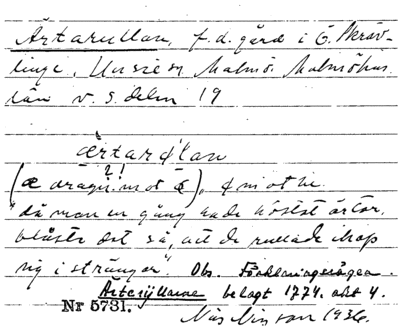 Ärtarullan, f.d. gård i Ö. Skräv-
linge, Uusie sn Malmö. Malmöhus
län v. s. delen 19
ærtarǿlan
(æ dragn. mot ), ǿ mot he.
"då man en gång hade höstat ärtor,
blåste det så, att de rullade ihop
sig i strängar". Obs. Förklaringssägen.
belagt 1774. akt 4.
Nr 5731.
Nils Nilsson 1936.